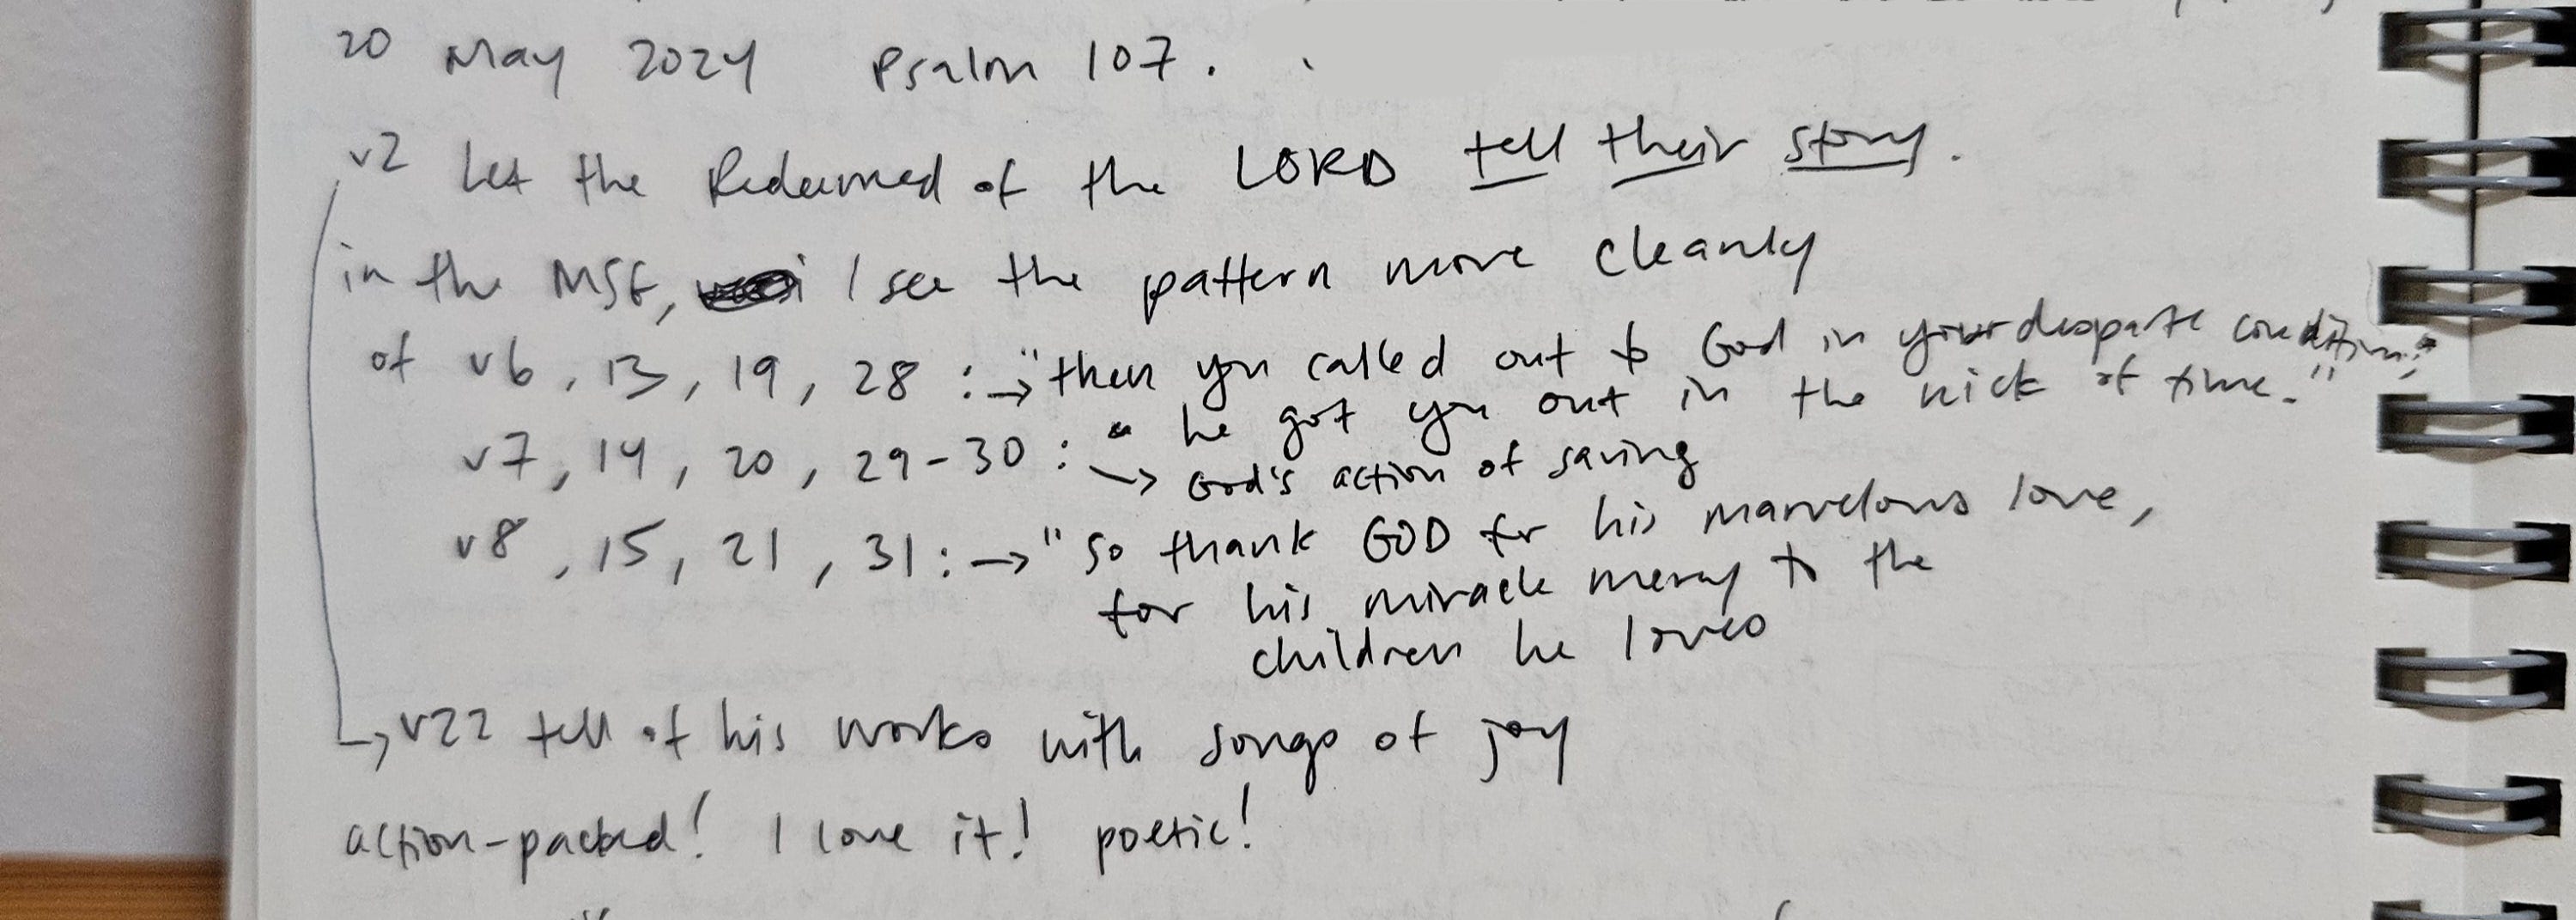 20 May 2024 Psalm 107.
v2 Let the Redeemed of the LORD tell their story.
in the MSG, I see the pattern more cleanly
of v6, 13, 19, 28 : → "then you called out to God in your desperate condition;
he got you out in the nick of time."
v7, 14, 20, 29-30 : → God's action of saving
v8, 15, 21, 31 : → "So thank GOD for his marvelous love,
for his miracle mercy to the
children he loves
↳ v22 tell of his works with songs of joy
action-packed! I love it! poetic!